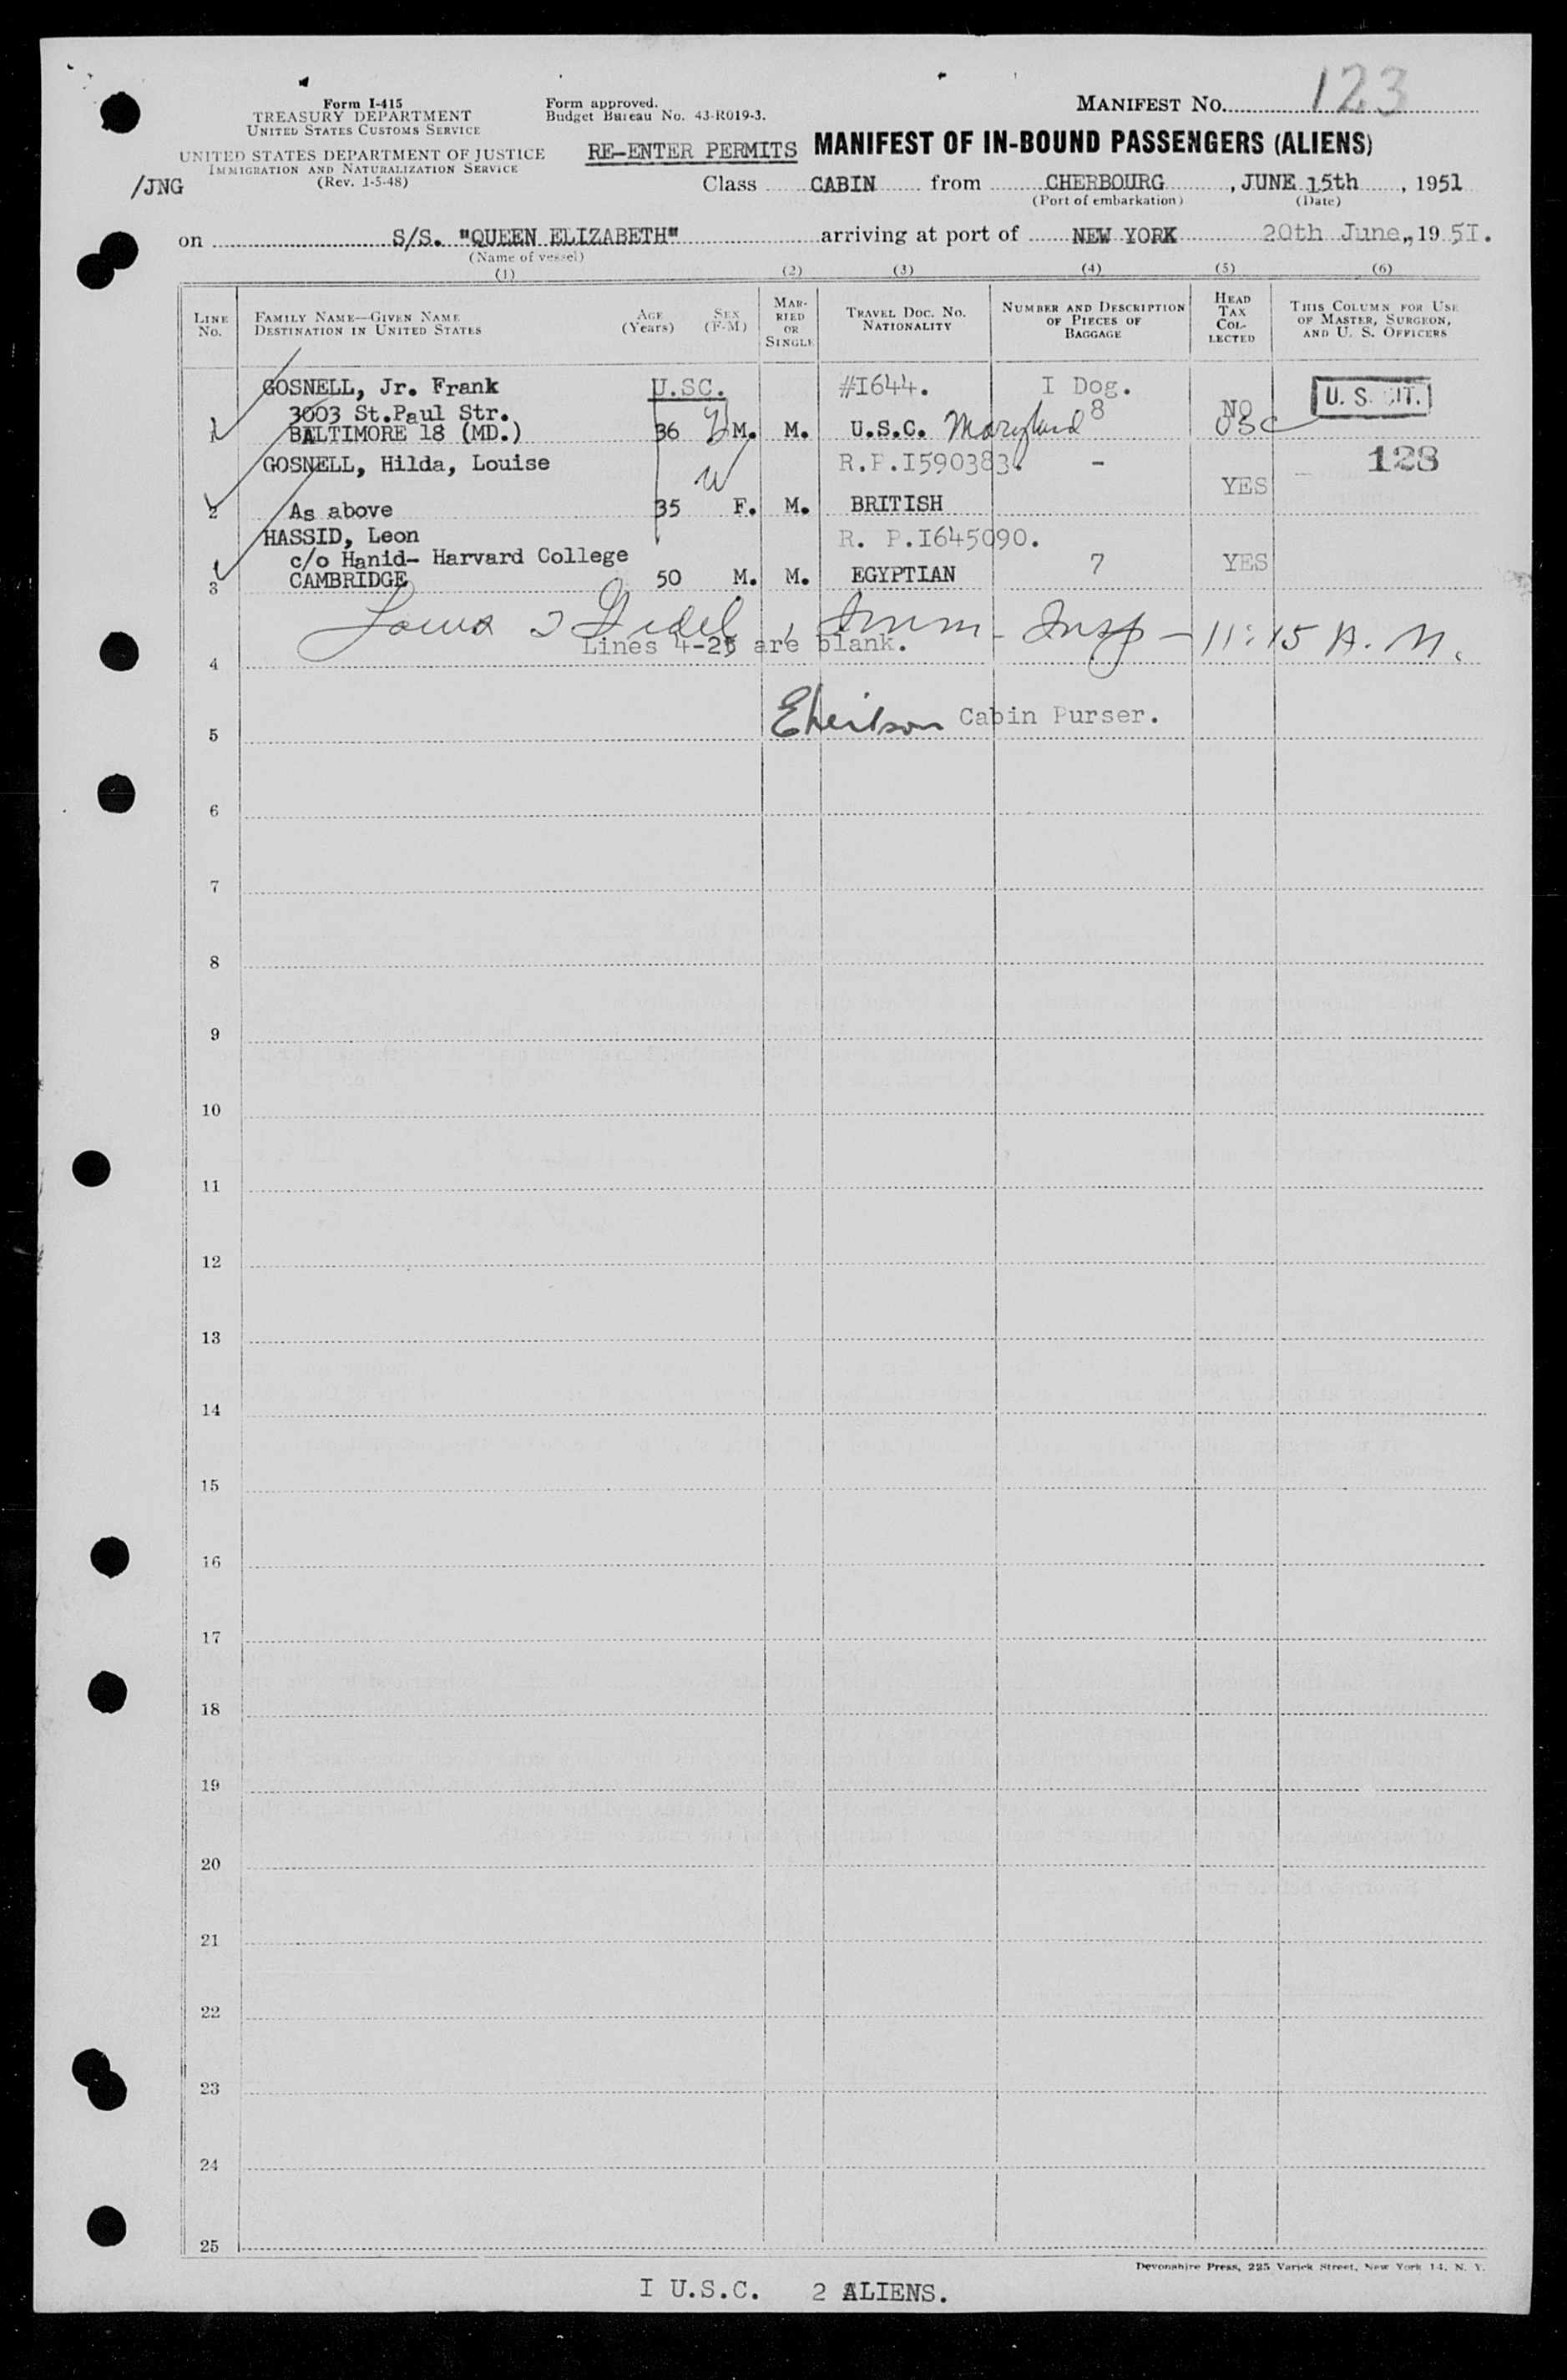 MANIFEST NO. 123
Form I-415
TREASURY DEPARTMENT
UNITED STATES CUSTOMS SERVICE
UNITED STATES DEPARTMENT OF JUSTICE
IMMIGRATION AND NATURALIZATION SERVICE
(Rev. 1-5-48)
/JNG
Form approved.
Budget Bureau No. 43-R019-3.
RE-ENTER PERMITS MANIFEST OF IN-BOUND PASSENGERS (ALIENS)
Class CABIN from CHERBOURG, JUNE 15th, 1951
(Port of embarkation) (Date)
on S/S. "QUEEN ELIZABETH" arriving at port of NEW YORK 20th June, 1951.
(Name of vessel)
(1) (2) (3) (4) (5) (6)
LINE NO.
FAMILY NAME—GIVEN NAME
DESTINATION IN UNITED STATES
AGE (Years)
SEX (F-M)
MARRIED OR SINGLE
TRAVEL DOC. NO.
NATIONALITY
NUMBER AND DESCRIPTION OF PIECES OF BAGGAGE
HEAD TAX COLLECTED
THIS COLUMN FOR USE OF MASTER, SURGEON, AND U. S. OFFICERS
GOSNELL, Jr. Frank U.SC. #I644. I Dog. U. S. CIT.
3003 St.Paul Str. 8 NO
1 BALTIMORE 18 (MD.) 36 M. M. U.S.C. Maryland USC
GOSNELL, Hilda, Louise W R.P.I590383. - 128
YES
2 As above 35 F. M. BRITISH
HASSID, Leon R. P.I645090.
c/o Hanid- Harvard College 7 YES
3 CAMBRIDGE 50 M. M. EGYPTIAN
Imm - Insp - 11:15 A.M.
4 Lines 4-25 are blank.
5 Cabin Purser.
6
7
8
9
10
11
12
13
14
15
16
17
18
19
20
21
22
23
24
25
Devonshire Press, 225 Varick Street, New York 14, N. Y.
I U.S.C. 2 ALIENS.